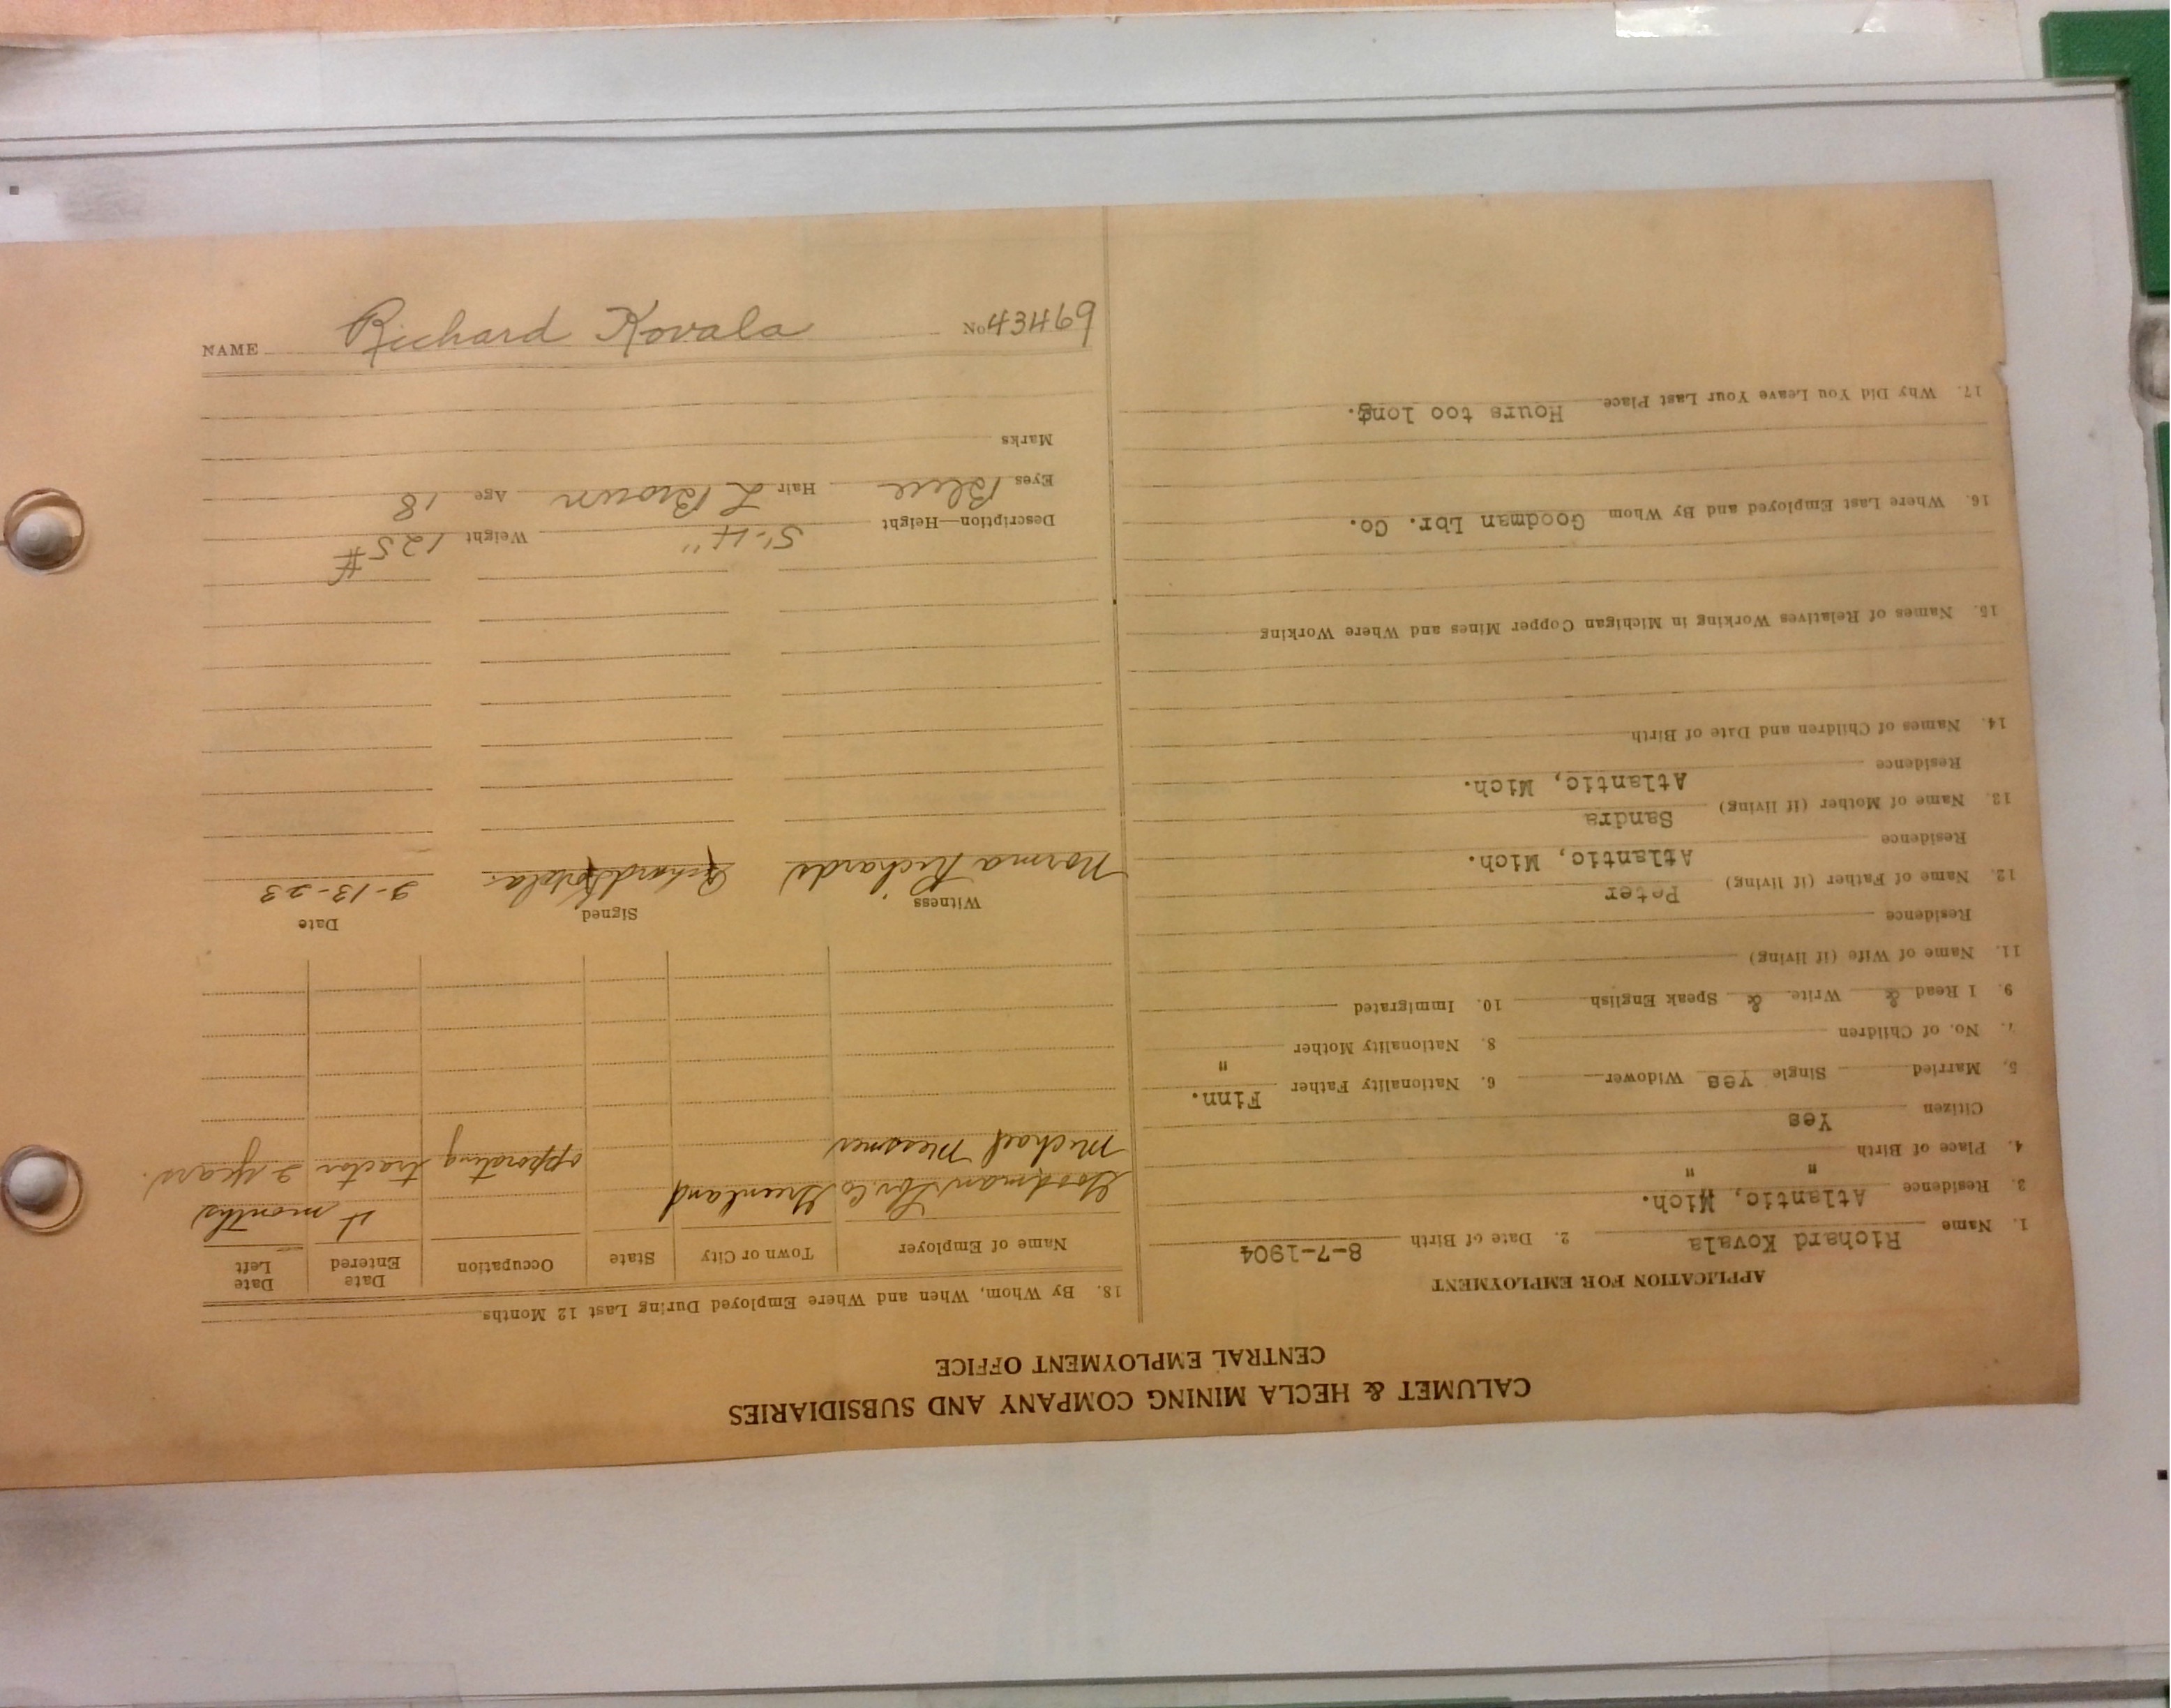 CALUMET & HECLA MINING COMPANY AND SUBSIDIARIES
CENTRAL EMPLOYMENT OFFICE
APPLICATION FOR EMPLOYMENT
1. Name Richard Kovala 2. Date of Birth 8-7-1904
3. Residence Atlantic, Mich.
4. Place of Birth " "
Citizen Yes
5. Married Single Yes Widower 6. Nationality Father Finn.
7. No. of Children 8. Nationality Mother "
9. I Read & Write. & Speak English 10. Immigrated
11. Name of Wife (if living)
Residence
12. Name of Father (if living) Peter
Residence Atlantic, Mich.
13. Name of Mother (if living) Sandra
Residence Atlantic, Mich.
14. Names of Children and Date of Birth
15. Names of Relatives Working in Michigan Copper Mines and Where Working
16. Where Last Employed and By Whom Goodman Lbr. Co.
17. Why Did You Leave Your Last Place Hours too long.
18. By Whom, When and Where Employed During Last 12 Months
Name of Employer Town or City State Occupation Date Entered Date Left
Goodman Lbr. Co Greenland 4 months
Michael Messner opporating tractor 2 years.
Witness Signed Date
Norma Richards Richard Kovala 2-13-23
Description—Height 5'-4" Weight 125#
Eyes Blue Hair L Brown Age 18
Marks
NAME Richard Kovala No 43469